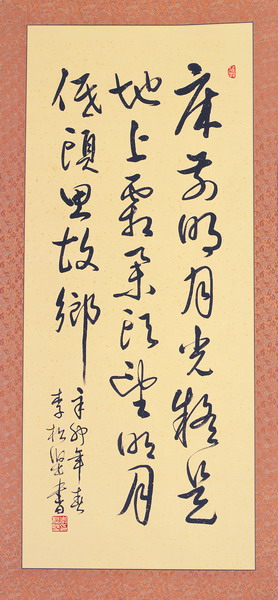 床前明月光疑是
地上霜舉頭望明月
低頭思故鄉
辛卯年春
李松堅書